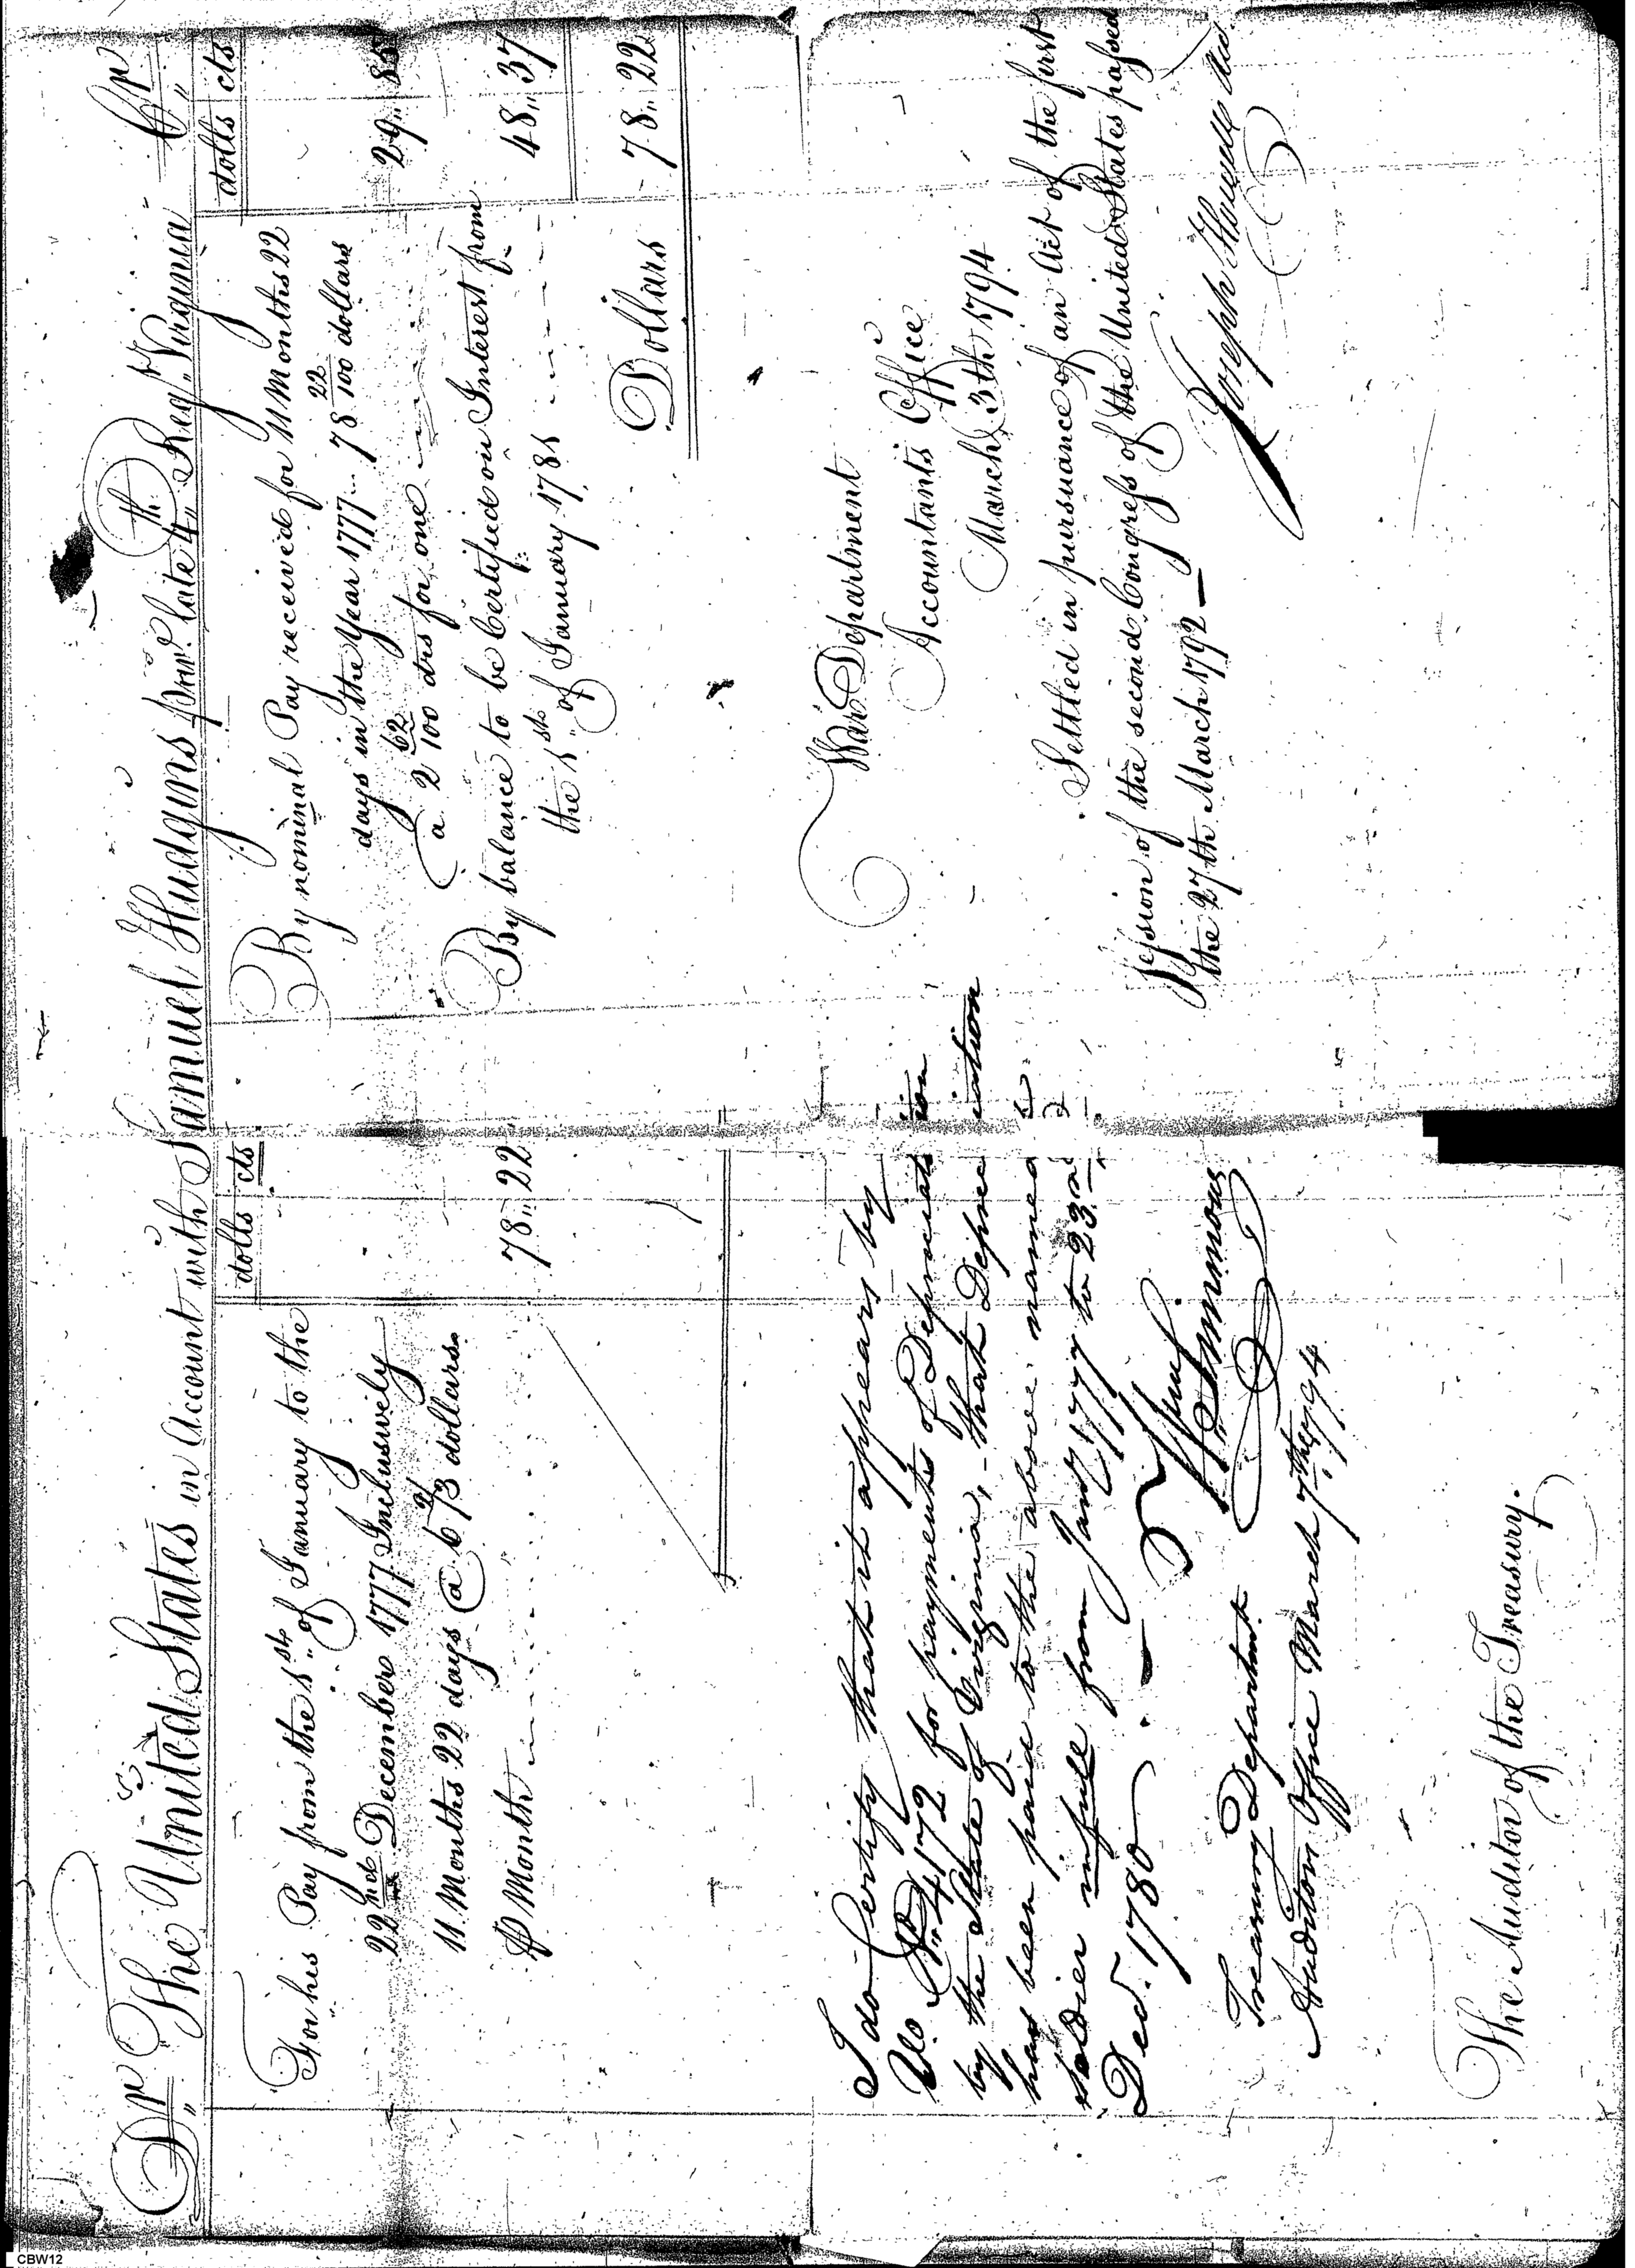 Dr The United States in Account with Samuel Hudgins late 4th Reg. Virginia Cr
dolls cts
For his Pay from the 1st of January to the
22nd December 1777 Inclusively
11 Months 22 days @ 6 2/3 dollars
Month 78 22
I do Certify that it appears by
for payments of Depreciation
by the State of Virginia, that Depreciation
has been paid to the above named
soldier in full from Jany 1777 to 23rd
Decr. 1780
Simmons
Treasury Department
Auditors Office March 7th 1794
The Auditor of the Treasury.
dolls cts
By nominal Pay received for 11 Months 22
days in the Year 1777 78 22/100 dollars
a 2 62/100 drs for one 29 85
By balance to be Certified on Interest from
the 1st of January 1781 48 37
Dollars 78 22
War Department
Accountants Office
March 3th 1794
Settled in pursuance of an Act of the first
session of the second Congress of the United States passed
the 27th March 1792
Joseph Howell
CBW12